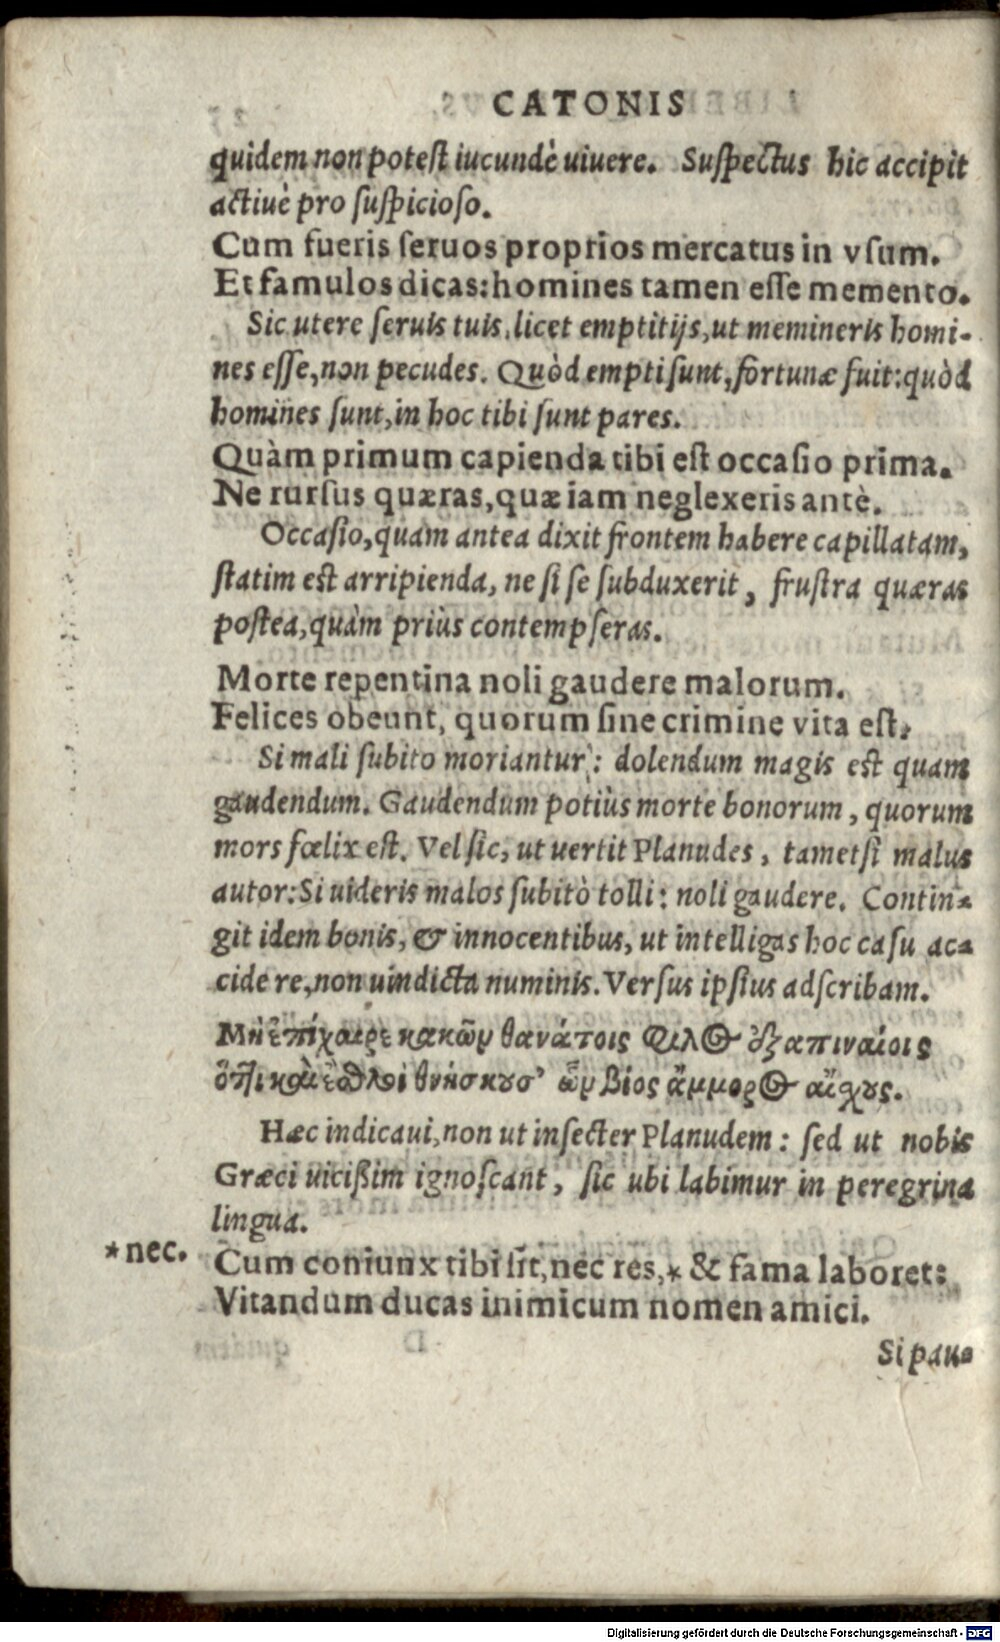 CATONIS
quidem non potest iucundè uiuere. Suspectus hic accipit
actiuè pro suspicioso.
Cum fueris seruos proprios mercatus in vsum.
Et famulos dicas: homines tamen esse memento.
Sic utere seruis tuis, licet emptitijs, ut memineris homi-
nes esse, non pecudes. Quòd empti sunt, fortunæ fuit: quòd
homines sunt, in hoc tibi sunt pares.
Quàm primum capienda tibi est occasio prima.
Ne rursus quæras, quæ iam neglexeris antè.
Occasio, quam antea dixit frontem habere capillatam,
statim est arripienda, ne si se subduxerit, frustra quæras
postea, quàm priùs contempseras.
Morte repentina noli gaudere malorum.
Felices obeunt, quorum sine crimine vita est.
Si mali subito moriantur: dolendum magis est quam
gaudendum. Gaudendum potiùs morte bonorum, quorum
mors fœlix est. Vel sic, ut uertit Planudes, tametsi malus
autor: Si uideris malos subitò tolli: noli gaudere. Contin-
git idem bonis, & innocentibus, ut intelligas hoc casu ac-
cidere, non uindicta numinis. Versus ipsius adscribam.
Μὴ ἐπίχαιρε κακῶν θανάτοις φίλος ἐξαπιναίοις
ὅττι καὶ ἐσθλοὶ θνήσκουσ' ὧν βίος ἄμμορος αἴσχους.
Hæc indicaui, non ut insecter Planudem: sed ut nobis
Græci uicißim ignoscant, sic ubi labimur in peregrina
lingua.
*nec. Cum coniunx tibi sit, nec res,* & fama laboret:
Vitandum ducas inimicum nomen amici.
Si pau-
Digitalisierung gefördert durch die Deutsche Forschungsgemeinschaft - DFG